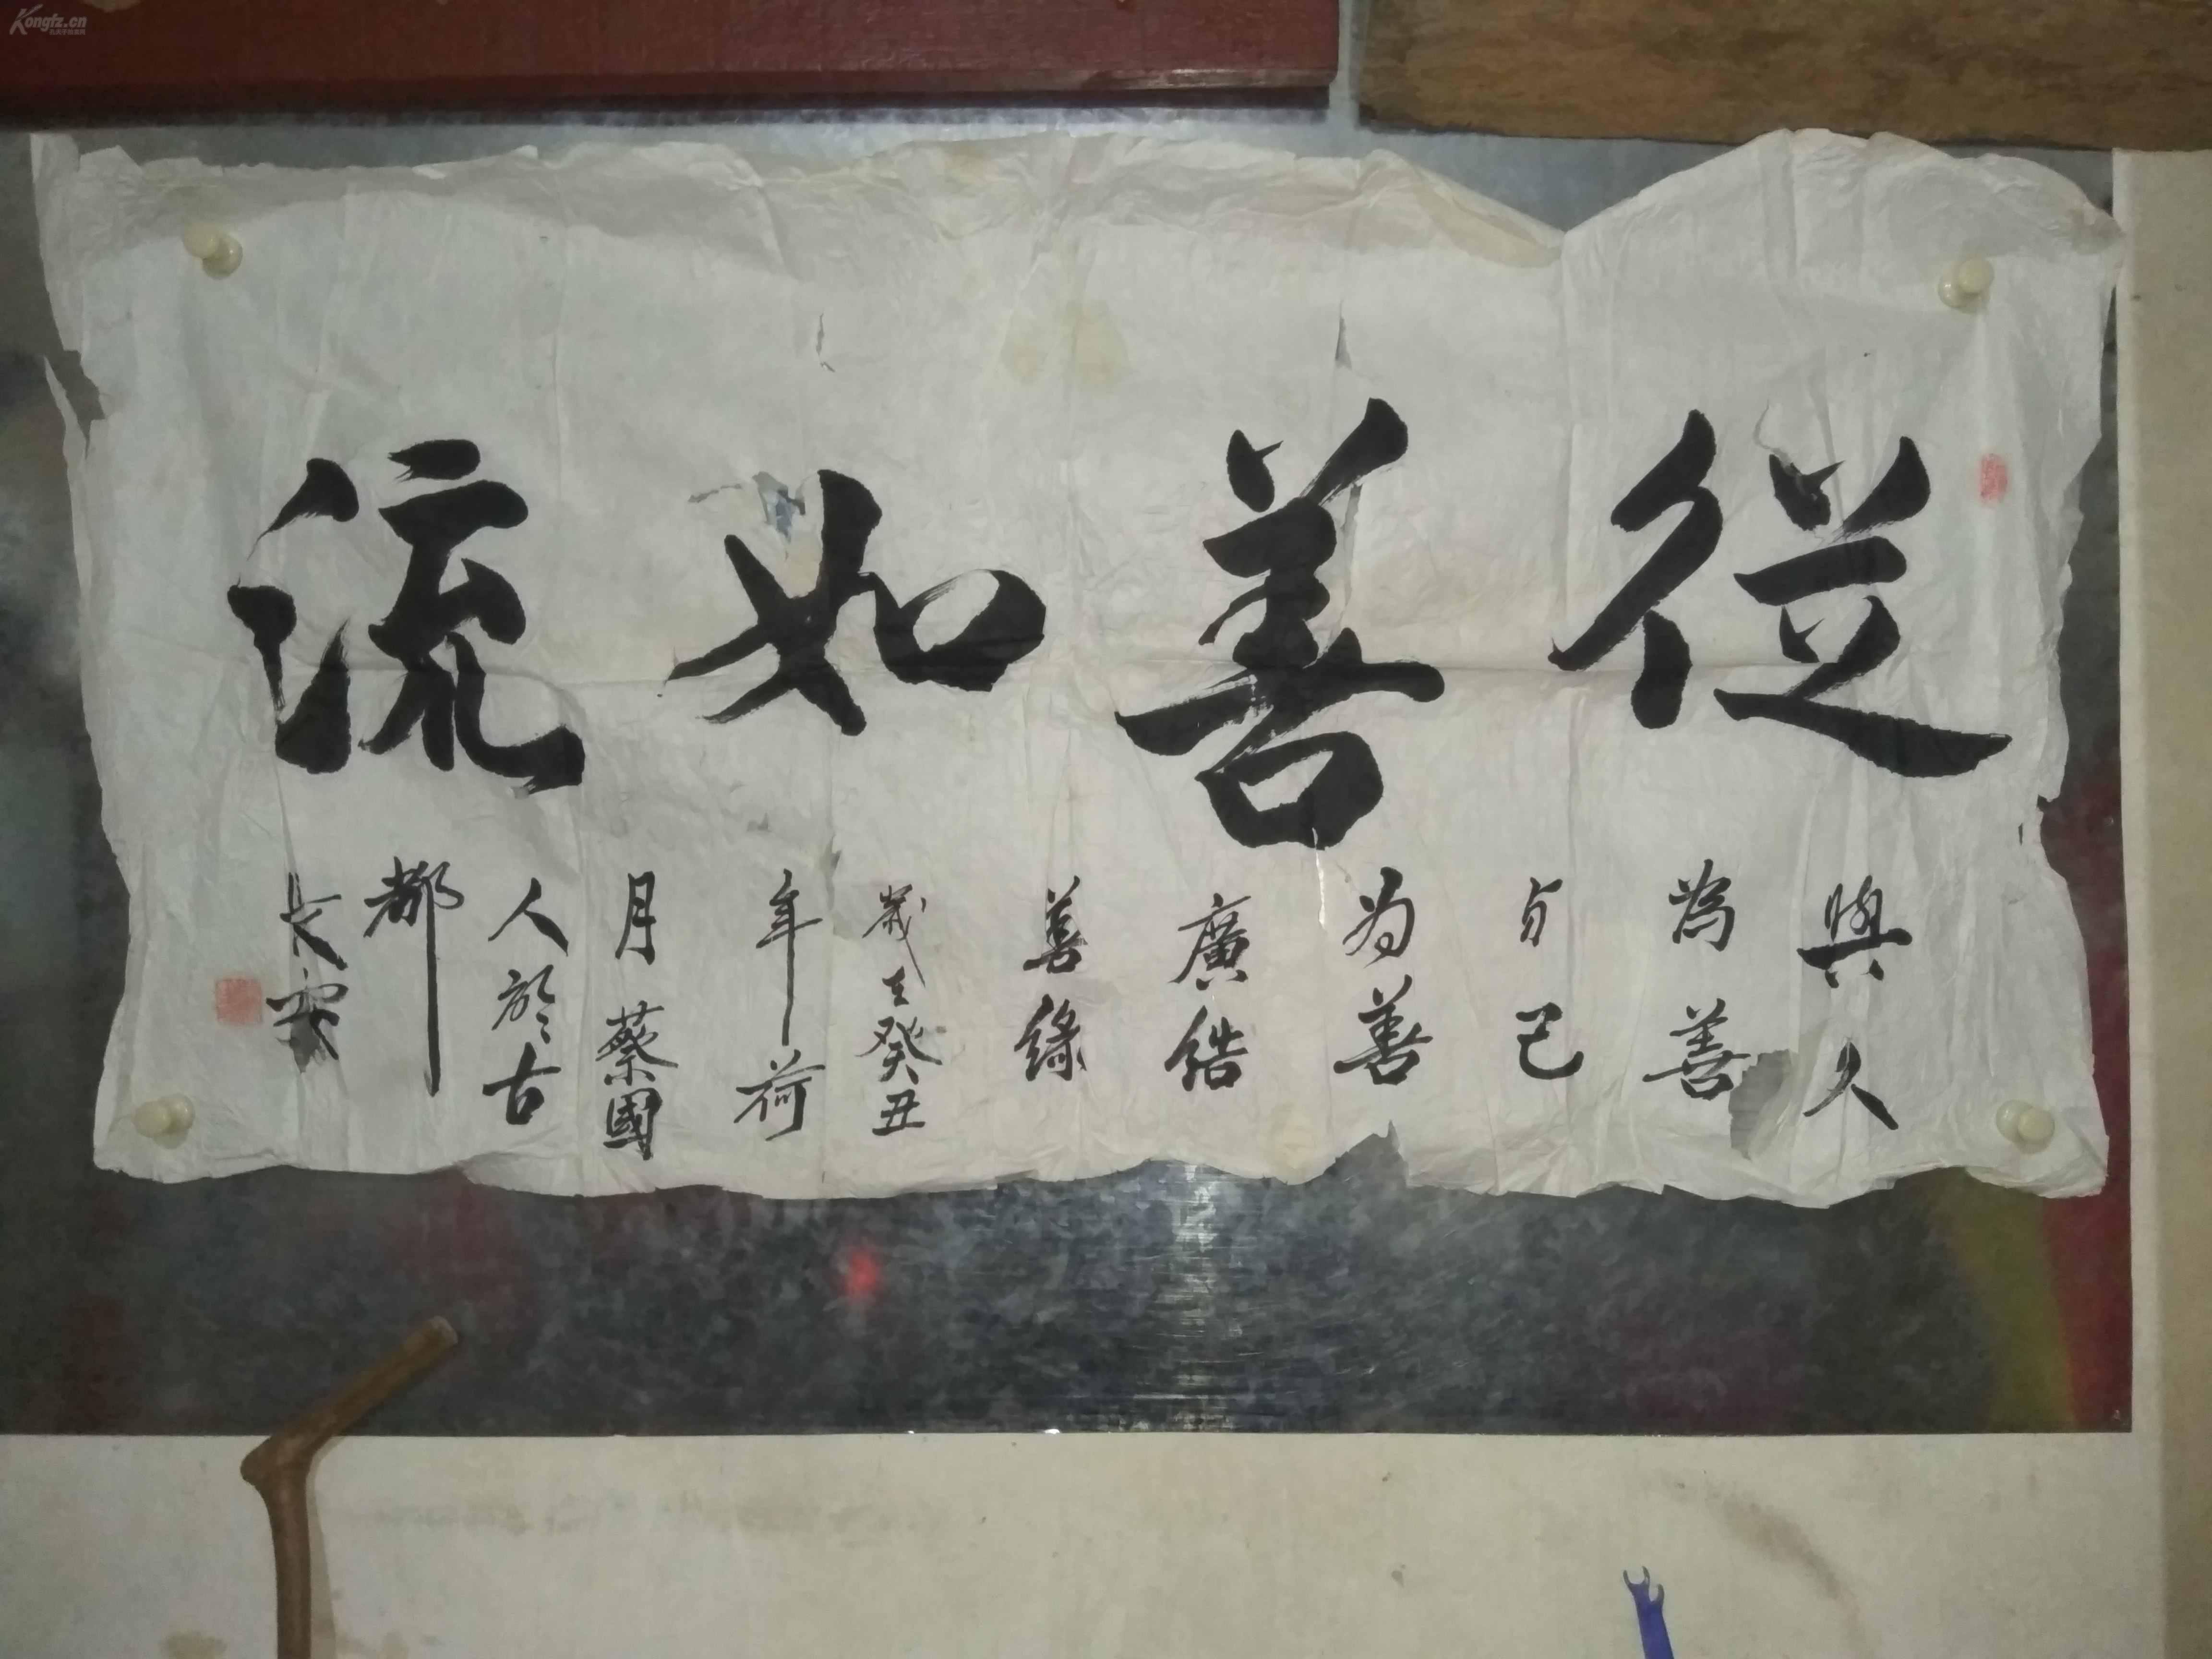 從善如流
與人
為善
与己
为善
廣結
善緣
歲在癸丑
年荷
月蔡國
人於古
都
長安
Kongfz.cn